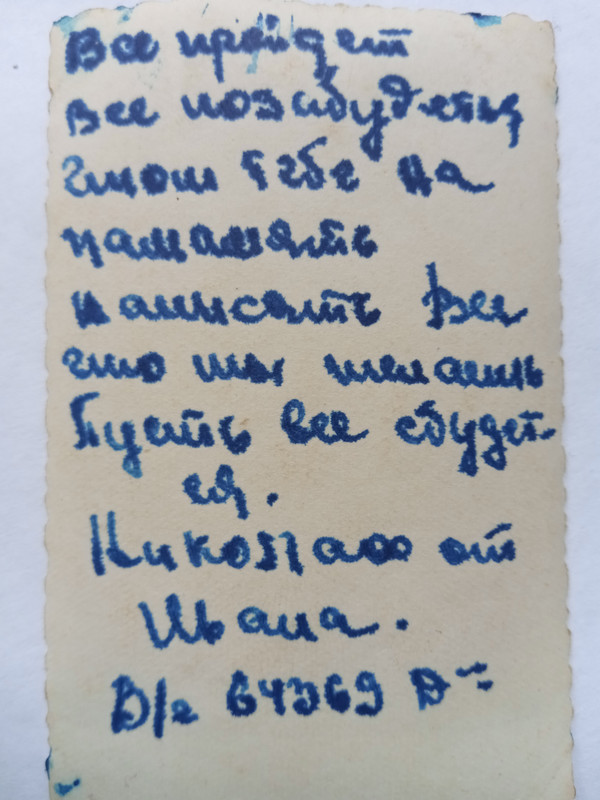 Все пройдет
все позабудется
чтош тебе на
памамять
написать Все
что ты желаешь
Пусть все сбудет-
ся.
Николаю от
Ивана.
В/ч 64369 Д"